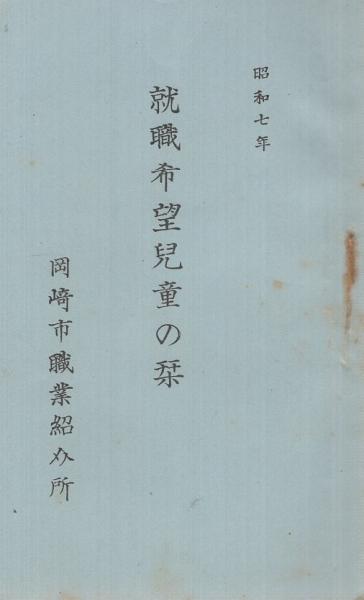 昭和七年
就職希望兒童の栞
岡﨑市職業紹介所